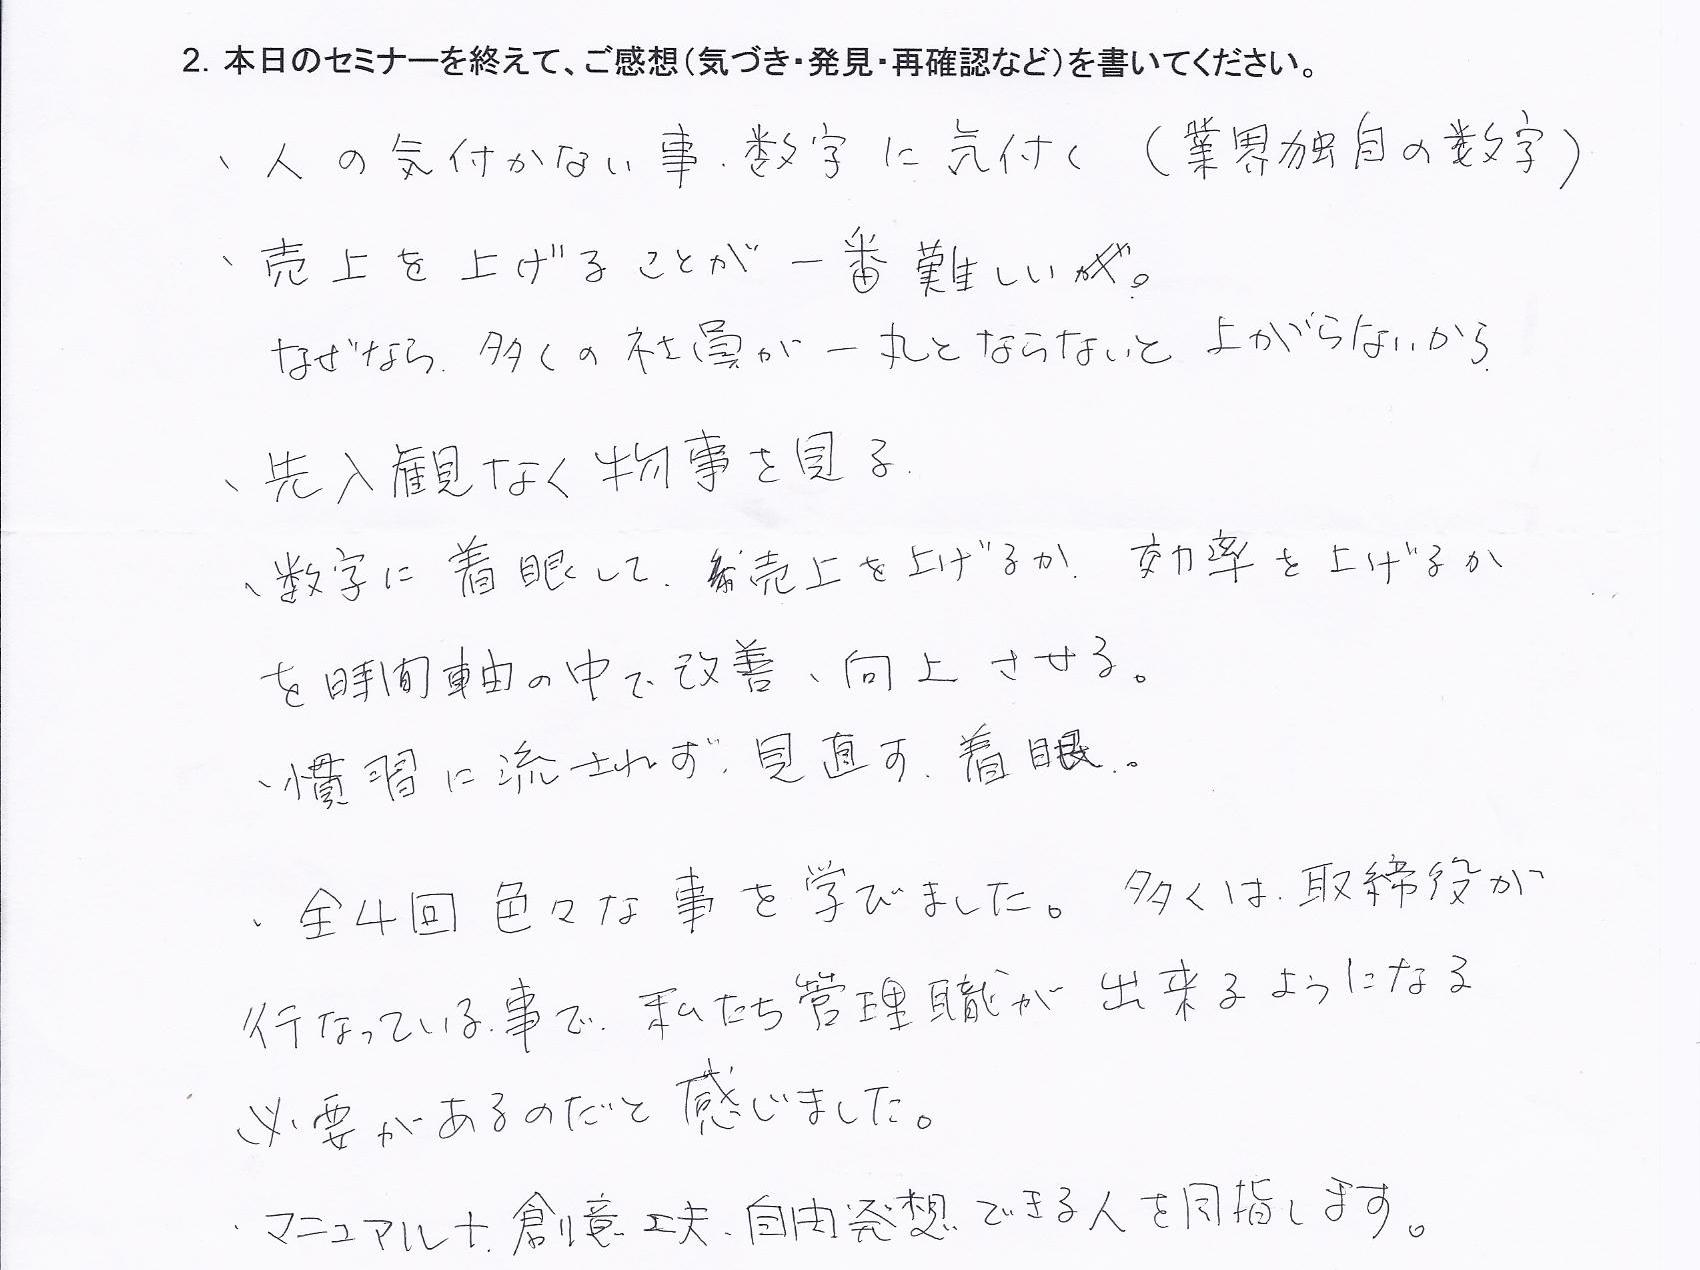 2. 本日のセミナーを終えて、ご感想(気づき・発見・再確認など)を書いてください。
、人の気付かない事、数字に気付く (業界独自の数字)
、売上を上げることが一番難しい。
なぜなら、多くの社員が一丸とならないと上がらないから
、先入観なく物事を見る、
、数字に着眼して、売上を上げるか、効率を上げるか
を時間軸の中で改善、向上させる。
、慣習に流されず、見直す、着眼。
・全4回色々な事を学びました。多くは、取締役が
行なっている事で、私たち管理職が出来るようになる
必要があるのだと感じました。
・マニュアル+、創意工夫、自由発想できる人を目指します。